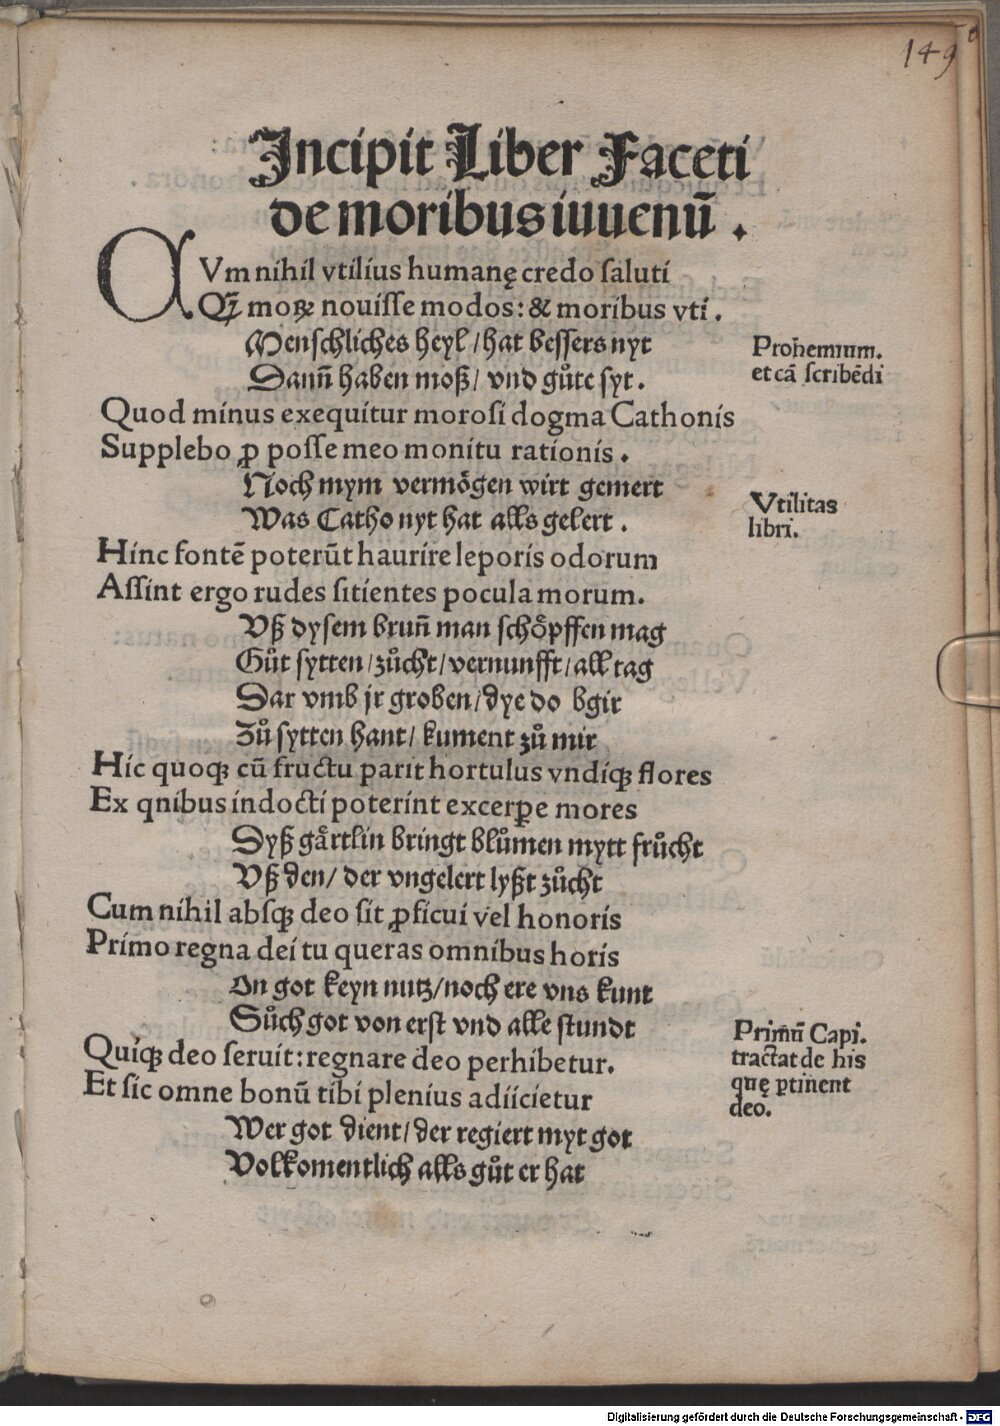 149
Incipit Liber Faceti
de moribus iuuenū .
CVm nihil vtilius humanę credo saluti
Qꝫ moꝝ nouisse modos: & moribus vti .
Menschliches heyl / hat bessers nyt
Dann̄ haben moß / vnd gůte syt .
Prohemium.
et cā scribēdi
Quod minus exequitur morosi dogma Cathonis
Supplebo ꝓ posse meo monitu rationis .
Noch mym vermögen wirt gemert
Was Catho nyt hat alls gelert .
Vtilitas
libri.
Hinc fontē poterūt haurire leporis odorum
Assint ergo rudes sitientes pocula morum.
Vß dysem brun̄ man schöpffen mag
Gůt sytten / zůcht / vernunfft / all tag
Dar vmb jr groben / dye do bgir
Zů sytten hant / kument zů mir
Hic quoqꝫ cū fructu parit hortulus vndiqꝫ flores
Ex qnibus indocti poterint excerꝑe mores
Dyß gaͤrtlin bringt blůmen mytt frůcht
Vß den / der vngelert lyßt zůcht
Cum nihil absqꝫ deo sit ꝓficui vel honoris
Primo regna dei tu queras omnibus horis
On got keyn nutz / noch ere vns kunt
Sůch got von erst vnd alle stundt
Primū Capi.
tractat de his
quę ꝑtinent
deo.
Quiqꝫ deo seruit: regnare deo perhibetur.
Et sic omne bonū tibi plenius adiicietur
Wer got dient / der regiert myt got
Volkomentlich alls gůt er hat
Digitalisierung gefördert durch die Deutsche Forschungsgemeinschaft - DFG